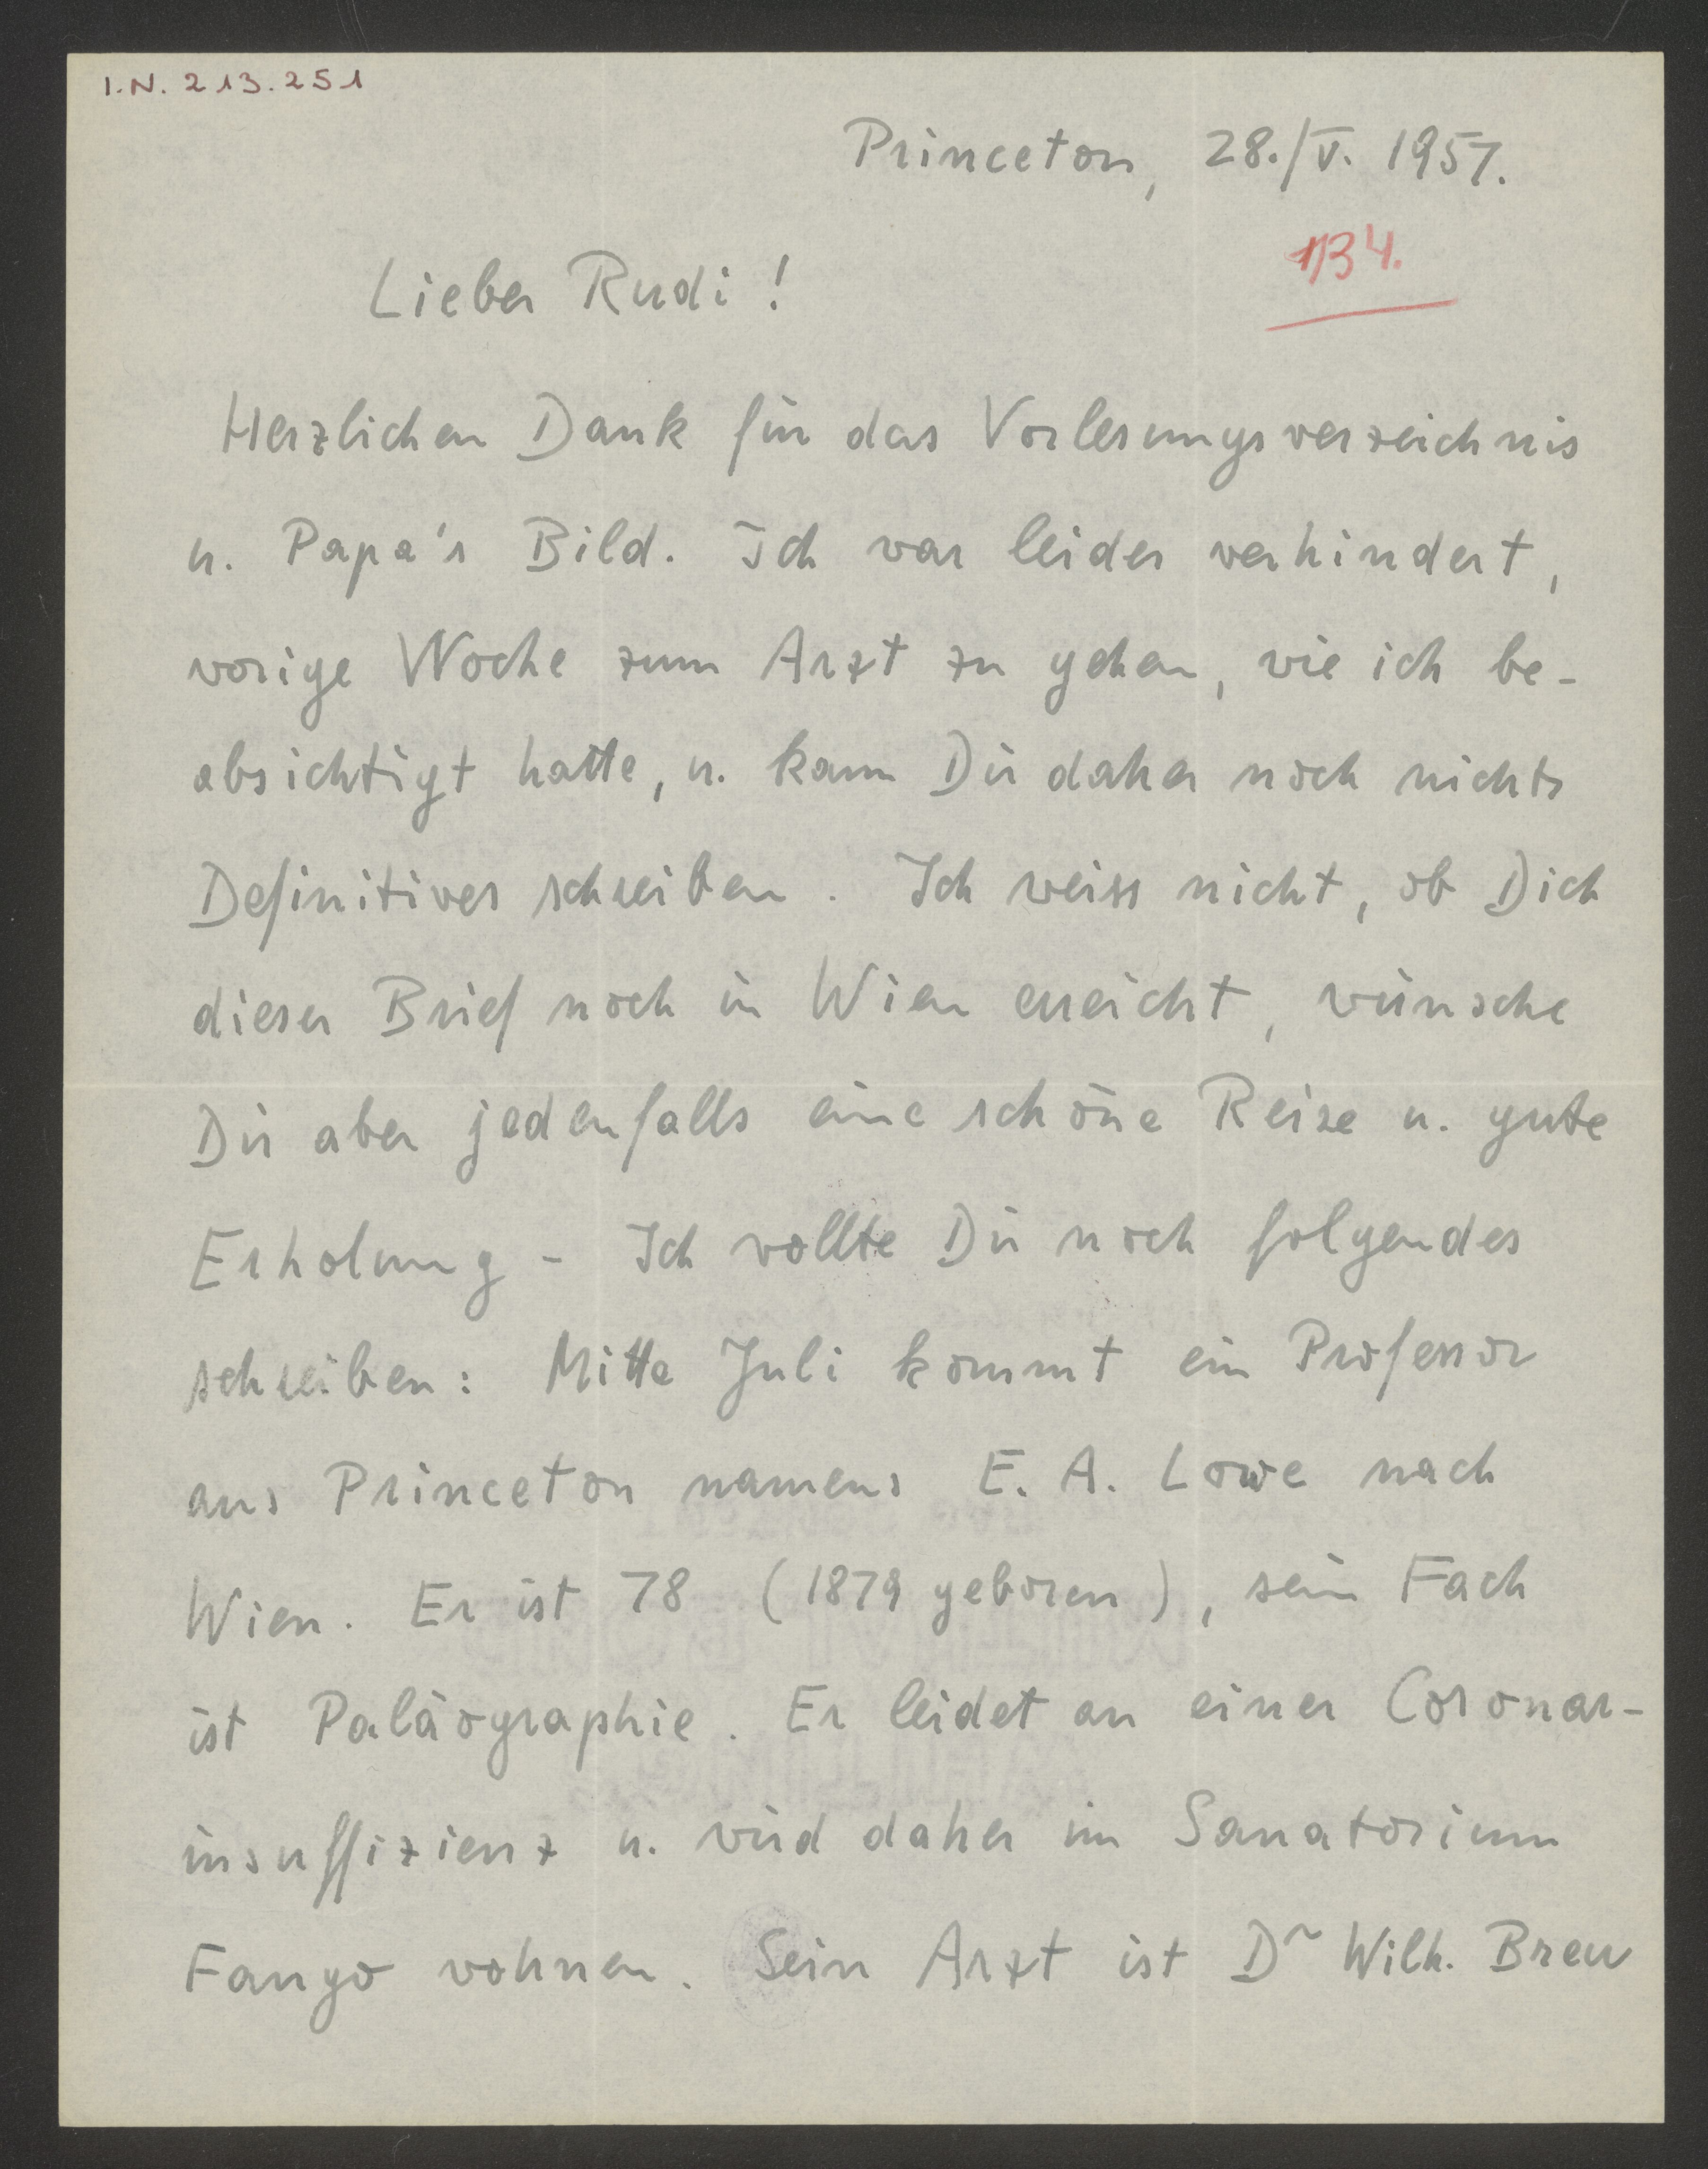 I.N. 213.251
Princeton, 28./V. 1957.
134.
Lieber Rudi !
Herzlichen Dank für das Vorlesungsverzeichnis
u. Papa's Bild. Ich war leider verhindert,
vorige Woche zum Arzt zu gehen, wie ich be-
absichtigt hatte, u. kann Dir daher noch nichts
Definitives schreiben. Ich weiss nicht, ob Dich
dieser Brief noch in Wien erreicht, wünsche
Dir aber jedenfalls eine schöne Reise u. gute
Erholung - Ich wollte Dir noch folgendes
schreiben: Mitte Juli kommt ein Professor
aus Princeton namens E. A. Lowe nach
Wien. Er ist 78 (1879 geboren), sein Fach
ist Paläographie. Er leidet an einer Coronar-
insuffizienz u. wird daher im Sanatorium
Fango wohnen. Sein Arzt ist Dr Wilh. Breu